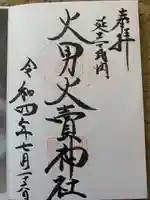 奉拝
延喜式内
火男火賣神社
令和四年七月